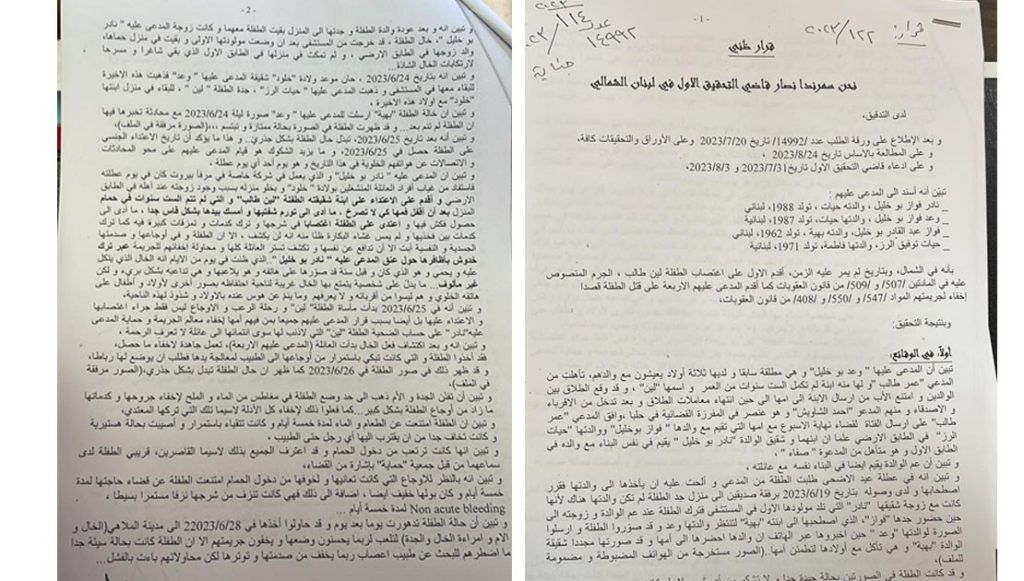 قرار: ١٢٢/٢٠٢٣
عدد ١٤٩٩٢
جناية
- ١ -
قرار ظني
نحن سمرندا نصار قاضي التحقيق الاول في لبنان الشمالي
لدى التدقيق،
و بعد الإطلاع على ورقة الطلب عدد /14992/ تاريخ 2023/7/20 وعلى الأوراق والتحقيقات كافة،
و على المطالعة بالاساس تاريخ 2023/8/24 ،
و على ادعاء قاضي التحقيق الاول تاريخ 2023/7/31 و 2023/8/3،
تبيّن أنه اسند الى المدعى عليهم :
_ نادر فواز بو خليل ، والدته حيات، تولد 1988، لبناني
_ وعد فواز بو خليل ، والدتها حيات، تولد 1987، لبنانية
_ فواز عبد القادر بو خليل ، والدته بهية ، تولد 1962، لبناني
_ حيات توفيق الرز، والدتها فاطمة، تولد 1971، لبنانية
بأنه في الشمال، وبتاريخ لم يمر عليه الزمن، أقدم الاول على اغتصاب الطفلة لين طالب ، الجرم المنصوص
عليه في المادتين /507/ و /509/ من قانون العقوبات كما أقدم المدعى عليهم الاربعة على قتل الطفلة قصدا
إخفاء لجريمتهم المواد /547/ و /550/ و /408/ من قانون العقوبات،
وبنتيجة التحقيق:
اولاً، في الوقائع:
تبين أن المدعى عليها " وعد بو خليل" و هي مطلقة سابقا و لديها ثلاثة أولاد يعيشون مع والدهم، تأهلت من
المدعي "عمر طالب" و لها منه ابنة لم تكمل الست سنوات من العمر و اسمها "لين" ، و قد وقع الطلاق بين
الوالدين و امتنع الأب من ارسال الابنة الى امها الى حين انتهاء معاملات الطلاق و بعد تدخل من الاقرباء
و الاصدقاء و منهم المدعو "احمد الشاويش" و هو عنصر في المفرزة القضائية في حلبا، وافق المدعي "عمر
طالب" على إرسال الفتاة لقضاء نهاية الاسبوع مع امها التي تقيم مع والدها " فواز بوخليل" ووالدتها "حيات
الرز" في الطابق الارضي علما ان ابنهما و شقيق الوالدة "نادر بو خليل " يقيم في نفس البناء مع والده في
الطابق الاول و هو متأهل من المدعوة " صفاء " ،
و تبين أن عم الوالدة يقيم ايضا في البناء نفسه مع عائلته ،
و تبين أنه في عطلة عيد الاضحى طلبت الطفلة من المدعي و ألحت عليه ان يأخذها الى والدتها فقرر
اصطحابها و لدى وصوله بتاريخ 2023/6/19 برفقة صديقين الى منزل جد الطفلة لم تكن والدتها هناك لأنها
كانت مع زوجة شقيقها "نادر" التي تلد مولودها الاول في المستشفى فترك الطفلة عند عم الوالدة و زوجته الى
حين حضور جدها "فواز"، الذي اصطحبها الى ابنته "بهية" لتنتظر والدتها وعد و قد صوروا الطفلة و ارسلوا
الصورة لوالدتها "وعد " حين اخبروها عبر الهاتف ان والدها احضرها الى أمها و قد صورتها مجددا شقيقة
الوالدة "بهية" و هي تأكل مع أولادها لتطمئن أمها. (الصور مستخرجة من الهواتف المضبوطة و مضمومة
للملف)،
- 2 -
و تبين انه و بعد عودة والدة الطفلة و جدتها الى المنزل بقيت الطفلة معهما و كانت زوجة المدعى عليه " نادر
بو خليل "، خال الطفلة ، قد خرجت من المستشفى بعد ان وضعت مولودتها الاولى و بقيت في منزل حماها،
والد زوجها في الطابق الارضي ، و لم تمكث في منزلها في الطابق الاول الذي بقي شاغرا و مسرحا
لارتكابات الخال الشاذة...
و تبين انه بتاريخ 2023/6/24 ، حان موعد ولادة "خلود" شقيقة المدعى عليها " وعد" فذهبت هذه الاخيرة
للبقاء معها في المستشفى و ذهبت المدعى عليها " حيات الرز" ، جدة الطفلة " لين " ، للبقاء في منزل ابنتها
"خلود" مع اولاد هذه الاخيرة ،
و تبين ان خالة الطفلة "بهية" ارسلت للمدعى عليها " وعد" صورة ليلة 2023/6/24 مع محادثة تخبرها فيها
ان الطفلة لم تنم بعد... و قد ظهرت الطفلة في الصورة بحالة ممتازة و تبتسم ،،،(الصورة مرفقة في الملف)،
و تبين أنه بعد تاريخ 2023/6/25، تبدل حال الطفلة بشكل جذري.. و هذا ما يؤكد أن تاريخ الاعتداء الجنسي
على الطفلة حصل في 2023/6/25، و ما يزيد الشكوك هو قيام المدعى عليهم على محو المحادثات
و الاتصالات عن هواتفهم الخلوية في هذا التاريخ و هو يوم أحد أي يوم عطلة ،
و تبين ان المدعى عليه " نادر بو خليل" و الذي يعمل في شركة خاصة في مرفأ بيروت كان في يوم عطلته
فاستفاد من غياب أفراد العائلة المنشغلين بولادة "خلود" و بخلو منزله بسبب وجود زوجته عند أهله في الطابق
الارضي و أقدم على الاعتداء على ابنة شقيقته الطفلة "لين طالب" و التي لم تتم الست سنوات في حمام
المنزل بعد أن أقفل فمها كي لا تصرخ ، ما أدى الى تورم شفتيها و أمسك بيدها بشكل قاس جدا، ما ادى الى
حصول فكش فيها و اعتدى على الطفلة اغتصابا في شرجها و ترك كدمات و تمزقات كبيرة فيه كما ترك
كدمات بين فخذيها و لم يمس غشاء البكارة ظنا منه انه لن يكتشف ، الا ان الطفلة و في أوجاعها و صدمتها
الجسدية و النفسية أبت الا أن تدافع عن نفسها و تكشف تستر العائلة كلها و محاولة إخفائهم للجريمة عبر ترك
خدوش بأظافرها حول عنق المدعى عليه " نادر بو خليل "..الذي ظنت في يوم من الايام انه الخال الذي يتكل
عليه و يحمي و هو الذي كان و قبل سنة قد صورها على هاتفه و هو يلاعبها و هي تداعبه بشكل بريء و لكن
غير مألوف... ما يدل على شخصية يتمتع بها الخال غريبة لناحية احتفاظه بصور أخرى لأولاد و أطفال على
هاتفه الخلوي و هم ليسوا من أقربائه و لا يعرفهم وما ينم عن هوس عنده بالاولاد و شذوذ لهذه الناحية،
و تبين أنه في 2023/6/25 بدأت مأساة الطفلة "لين" و رحلة الرعب و الاوجاع ليس فقط جراء اغتصابها
و الاعتداء عليها بل ايضا بسبب قرار المدعى عليهم جميعا بمن فيهم أمها إخفاء معالم الجريمة و حماية المدعى
عليه"نادر" على حساب الضحية الطفلة "لين" التي لاذنب لها سوى انتمائها الى عائلة لا تعرف الرحمة ،
و تبين انه و بعد اكتشاف فعل الخال بدأت العائلة (المدعى عليهم الاربعة)، تعمل جاهدة لاخفاء ما حصل،
فقد أخذوا الطفلة و التي كانت تبكي باستمرار من أوجاعها الى الطبيب لمعالجة يدها فطلب ان يوضع لها رباطا،
و قد ظهر ذلك في صور الطفلة في 2023/6/26 كما ظهر ان حال الطفلة تبدل بشكل جذري،(الصورة مرفقة
في الملف)،
و تبين أن تفنّن الجدة و الأم ذهب الى حد وضع الطفلة في مغاطس من الماء و الملح لإخفاء جروحها و كدماتها
ما زاد من أوجاع الطفلة بشكل كبير...كما فعلوا ذلك لإخفاء كل الأدلة لاسيما تلك التي تركها المعتدي،
و تبين ان الطفلة امتنعت عن الطعام و الماء لمدة خمسة أيام و كانت تتقياء باستمرار و أصيبت بحالة هستيرية
و كانت تخاف جدا من ان يقترب اليها أي رجل حتى الطبيب ،
و تبين انها كانت ترتعب من دخول الحمام و قد اعترف الجميع بذلك لاسيما القاصرين، قريبي الطفلة لدى
سماعهما من قبل جمعية "حماية" بإشارة من القضاء،
و تبين أنه بالنظر للاوجاع التي كانت تعانيها و لخوفها من دخول الحمام امتنعت الطفلة عن قضاء حاجتها لمدة
خمسة أيام و كان بولها خفيف ايضا ، اضافة الى ذلك فهي كانت تنزف من شرجها نزفا مستمرا بسيطا ،
Non acute bleeding لمدة خمسة أيام ...
و تبين أن حالة الطفلة تدهورت يوما بعد يوم و قد حاولوا أخذها في 22023/6/28 الى مدينة الملاهي(الخال و
الام و امراءة الخال والجدة) لتلعب لربما يحسنون وضعها و يخفون جريمتهم الا ان الطفلة كانت بحالة سيئة جدا
ما اضطرهم للبحث عن طبيب اعصاب ربما يخفف من صدمتها و توترها لكن محاولاتهم باءت بالفشل...